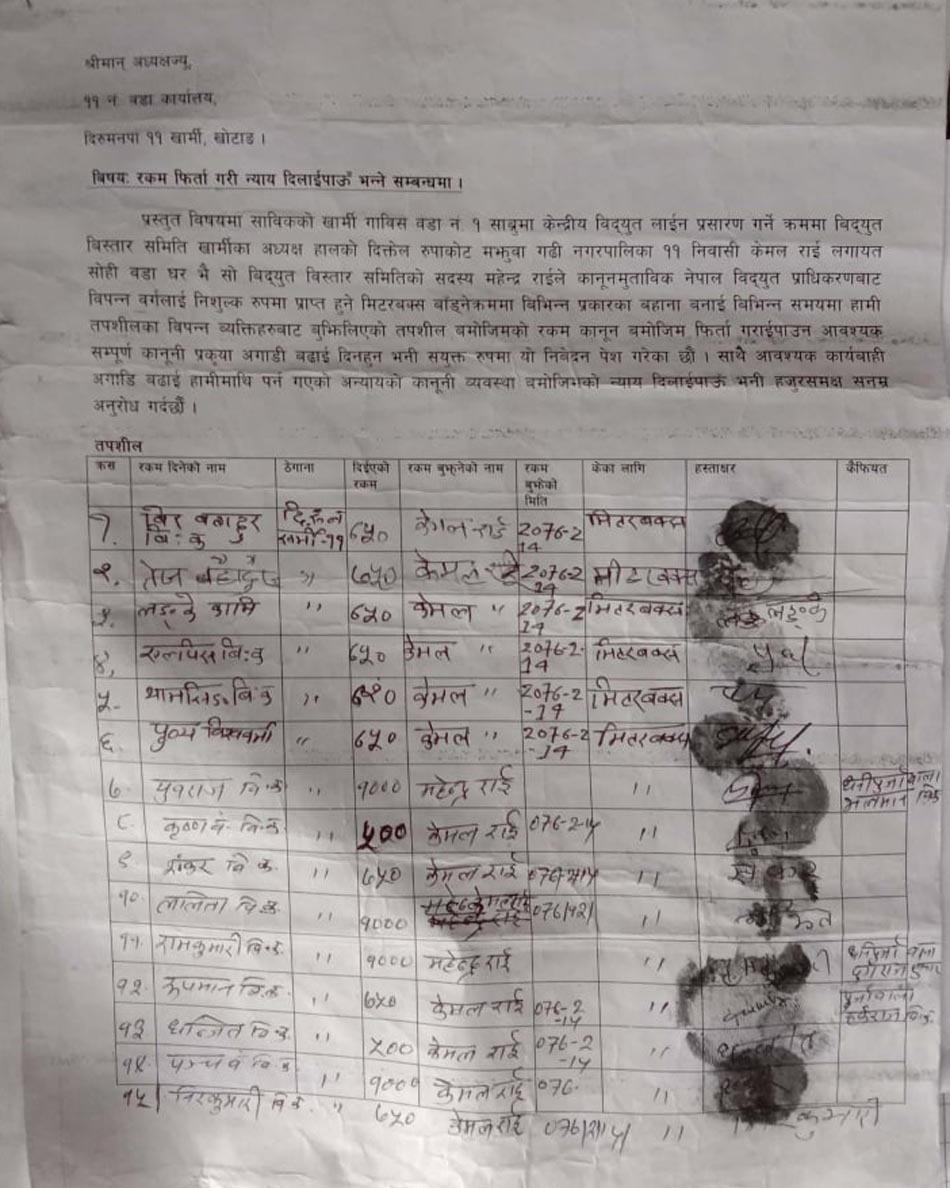 श्रीमान् अध्यक्षज्यू,
११ नं वडा कार्यालय,
दिरुमनपा ११ खार्मी, खोटाङ ।
बिषयः रकम फिर्ता गरी न्याय दिलाईपाऊँ भन्ने सम्बन्धमा ।
प्रस्तुत विषयमा साविकको खार्मी गाविस वडा नं १ साब्रुमा केन्द्रीय विद्युत लाईन प्रसारण गर्ने क्रममा बिद्युत
बिस्तार समिति खार्मीका अध्यक्ष हालको दिक्तेल रुपाकोट मझुवा गढी नगरपालिका ११ निवासी केमल राई लगायत
सोही वडा घर भै सो बिद्युत विस्तार समितिको सदस्य महेन्द्र राईले कानूनमुताविक नेपाल विद्युत प्राधिकरणबाट
विपन्न वर्गलाई निशुल्क रुपमा प्राप्त हुने मिटरबक्स बाँड्नेक्रममा बिभिन्न प्रकारका बहाना बनाई बिभिन्न समयमा हामी
तपशीलका विपन्न व्यक्तिहरुबाट बुझिलिएको तपशील बमोजिमको रकम कानून बमोजिम फिर्ता गराईपाउन आवश्यक
सम्पूर्ण कानूनी प्रकृया अगाडी बढाई दिनहुन भनी सयुक्त रुपमा यो निबेदन पेश गरेका छौ । साथै आवश्यक कार्यबाही
अगाडि बढाई हामीमाथि पर्न गएको अन्यायको कानूनी व्यवस्था बमोजिमको न्याय दिलाईपाऊँ भनी हजुरसमक्ष सनम्र
अनुरोध गर्दछौं ।
तपशील
क्रस रकम दिनेको नाम ठेगाना दिईएको रकम रकम बुझ्नेको नाम रकम बुझेको मिति केका लागि हस्ताक्षर कैफियत
१. बिर बहादुर बि.क खार्मी-११ ६५० केमल राई 2076-2 14 मिटरबक्स
२. तेज बहादुर " ६५० केमल राई 2076-2 -14 मीटरबक्स
३. लङ्के कामि " ६५० केमल " 2076-2 14 मिटरबक्स
४. बि.क " ६५० केमल " 2076-2- 14 मिटरबक्स
५. बि.क " केमल " 2076-2 -14 मिटरबक्स
६. विश्वकर्मा " ६५० केमल " 2076-2 -14 मिटरबक्स
७. युवराज वि.क " १००० महेन्द्र राई "
८. कृष्ण ब. बि.क " ५०० केमल राई 076-2-14 "
९. शंकर वि क. " ६५० केमल राई "
१०. ललिता बि.क. " १००० "
११. रामकुमारी बि.क. " १००० महेन्द्र राई "
१२. रुपमान बि.क. " ६५० केमल राई 076-2 -14 "
१३ धनजित बि.क. " ५०० केमल राई 076-2 -14 "
१४. बि.क " १००० केमल राई 076- "
१५ बि.क. " ६५० केमल राई "